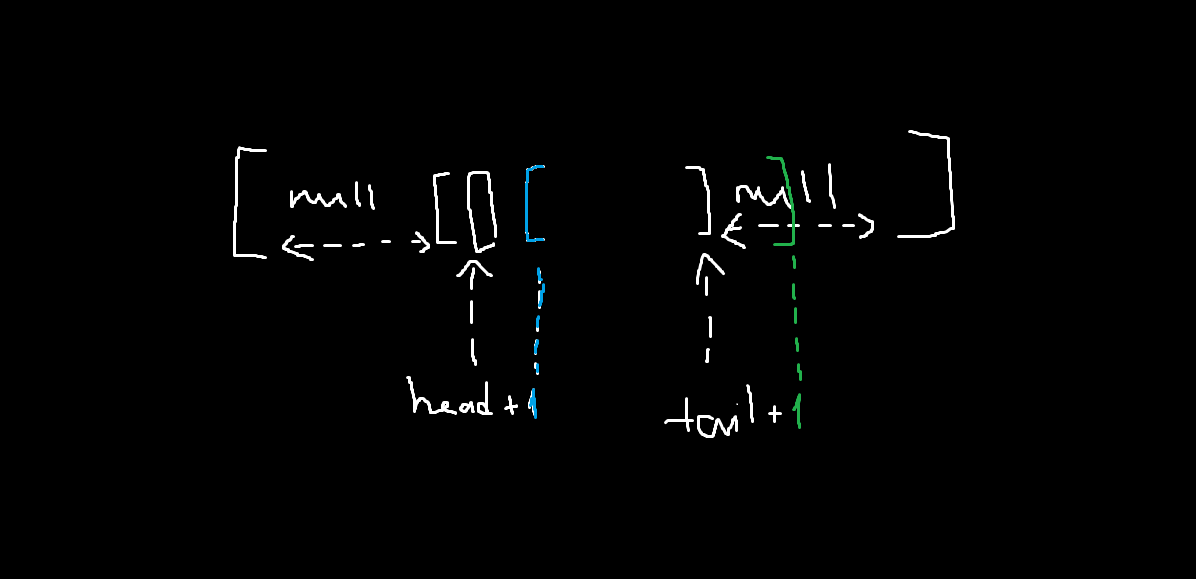 null null
head + 1 tail + 1